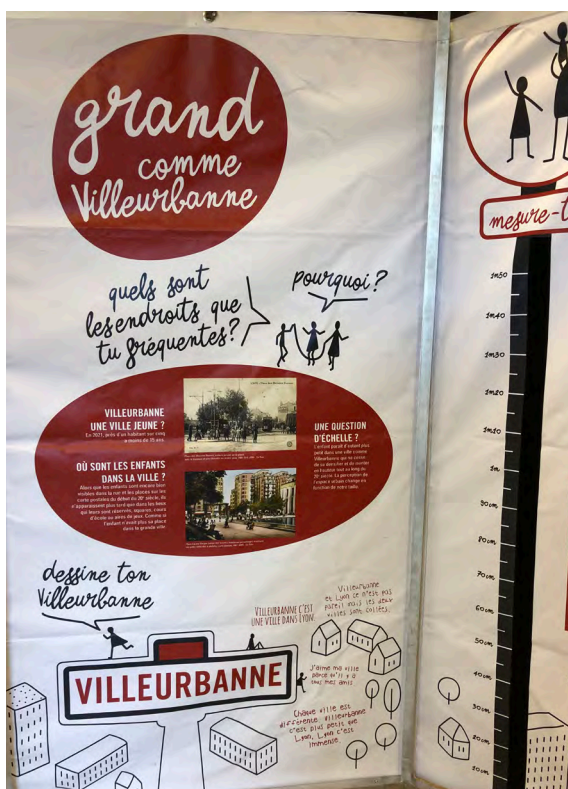 grand
comme
Villeurbanne
quels sont
les endroits que
tu fréquentes?
pourquoi?
VILLEURBANNE
UNE VILLE JEUNE ?
En 2021, près d'un habitant sur cinq
a moins de 15 ans.
OÙ SONT LES ENFANTS
DANS LA VILLE ?
Alors que les enfants sont encore bien
visibles dans la rue et les places sur les
carte postales du début du 20e siècle, ils
n'apparaissent plus tard que dans les lieux
qui leurs sont réservés, squares, cours
d'école ou aires de jeux. Comme si
l'enfant n'avait plus sa place
dans la grande ville.
UNE QUESTION
D'ÉCHELLE ?
L'enfant paraît d'autant plus
petit dans une ville comme
Villeurbanne qui ne cesse
de se densifier et de monter
en hauteur tout au long du
20e siècle. La perception de
l'espace urbain change en
fonction de notre taille.
dessine ton
Villeurbanne
VILLEURBANNE C'EST
UNE VILLE DANS LYON
Villeurbanne
et Lyon ce n'est pas
pareil mais les deux
villes sont collées.
J'aime ma ville
parce qu'il y a
tous mes amis
Chaque ville est
différente. Villeurbanne
c'est plus petit que
Lyon, Lyon c'est
immense.
VILLEURBANNE
mesure-t
1m50
1m40
1m30
1m20
1m10
1m
90cm
80cm
70cm
60cm
50cm
40cm
30cm
20cm
10cm